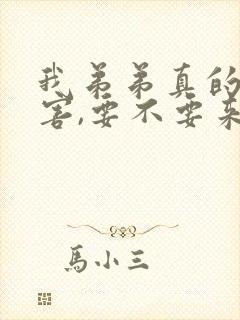 我弟弟真的
害,要不要来
馬小三